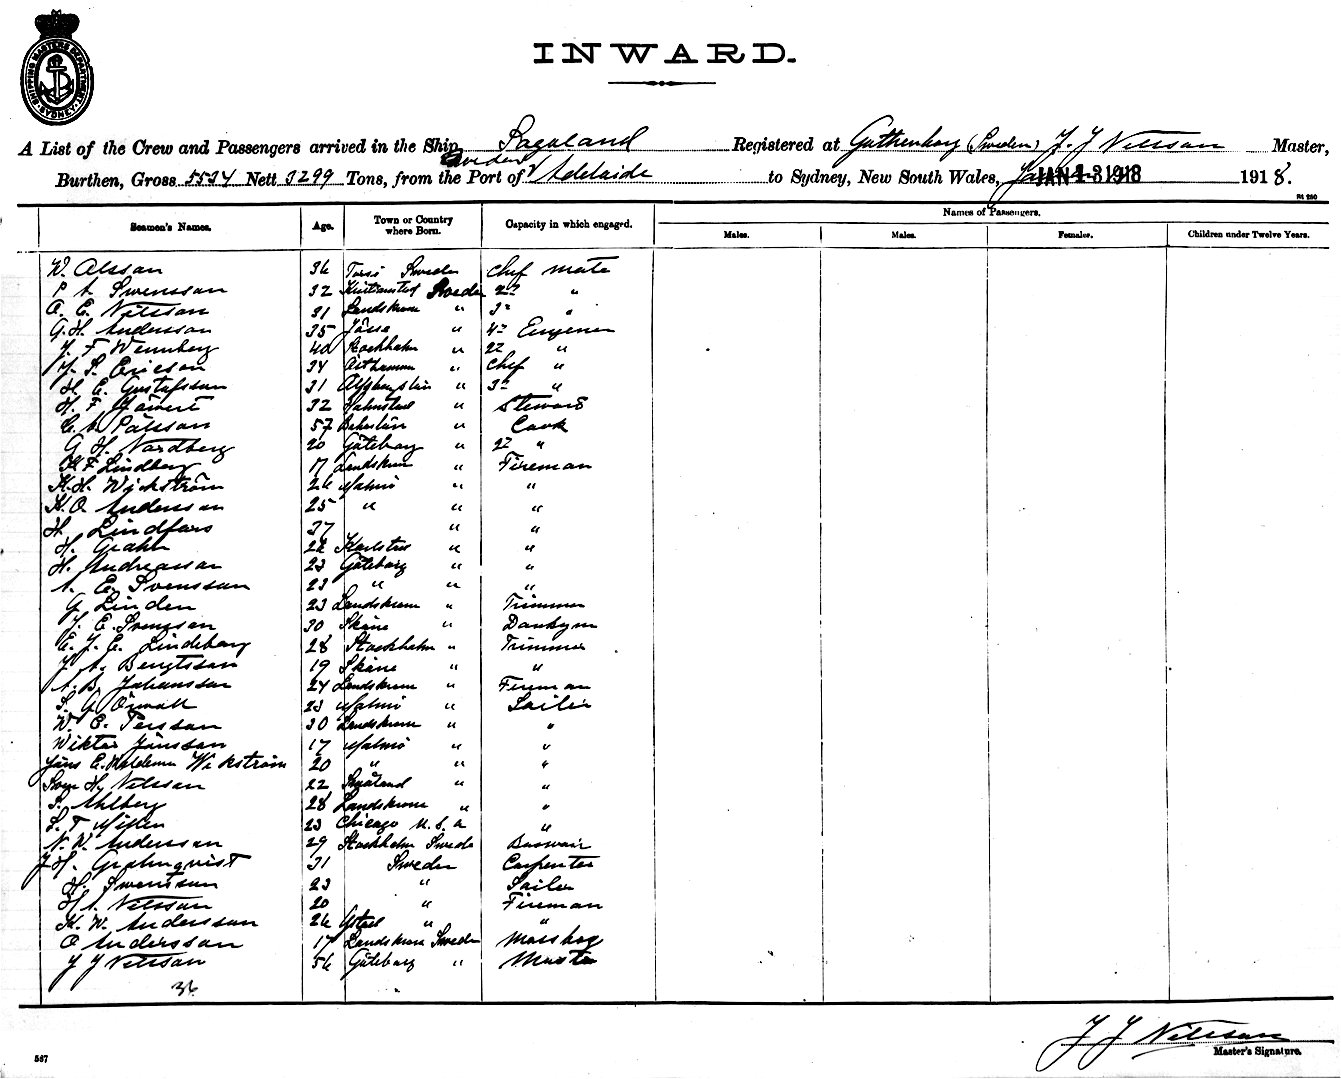 SHIPPING MASTERS DEPARTMENT SYDNEY
INWARD.
A List of the Crew and Passengers arrived in the Ship Sagaland Registered at Gothenborg (Sweden) J. J Nilsson Master,
Sweden
Burthen, Gross 5534 Nett 3299 Tons, from the Port of Adelaide to Sydney, New South Wales, JAN 1918 1918.
Seamen's Names. Age. Town or Country where Born. Capacity in which engaged. Names of Passengers.
Males. Males. Females. Children under Twelve Years.
W. Olsson 36 Sweden Chef mate
Swensson 32 Kristianstad Sweden 2n "
O. E. Nilsson 31 Landskrona " 3n "
G. H. Andersson 35 " 4n Engener
J. F Wennberg 40 Stockholm " 2n "
J. S. Ericson 34 " Chef "
H. E. Gustafsson 31 " 3n "
H. F. 32 Halmstad " Steward
Pålsson 57 " Cook
G. H. Nordberg 20 Göteborg " 2n "
K F Lindberg 17 Landskrona " Fireman
K. H. Wickström 26 Malmö " "
K. O. Andersson 25 " " "
H. Lindfors 37 " "
H. Grahn 22 Karlstad " "
H. Andreasson 23 Göteborg " "
A. E. Svensson 23 " " "
G Linden 23 Landskrona " Trimmer
J. E. Svensson 30 Skåne "
E. J. E. Lindeborg 28 Stockholm " Trimmer
J A. Bengtsson 19 Skåne " "
A. B. Johansson 24 Landskrona " Fireman
S. G. Örwall 23 Malmö " Sailer
W. E. Persson 30 Landskrona " "
Wiktor Jönsson 17 Malmö " "
Jöns E. Waldemar Wikström 20 " " "
Sven H. Nilsson 22 " "
S. Ahlberg 28 Landskrona " "
S. T. 23 Chicago U. S. A "
N. W. Andersson 29 Stockholm Sweden
J H. Grahnqvist 31 Sweden Carpenter
H. Svensson 23 " Sailer
H A. Nilsson 20 " Fireman
K. W. Andersson 26 Ystad " "
O Andersson 17 Landskrona Sweden Messboy
J J Nilsson 56 Göteborg " Master
36
J J Nilsson
Master's Signature.
567